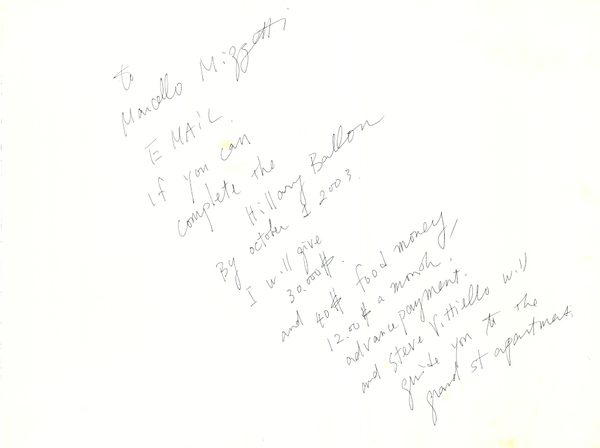 to
Marcello Mizzetti
E MAIL.
if you can
complete the
Hillary Ballon
By october 1 2003.
I will give
30.000#.
and 40# food money,
12.00# a monoh.
advance payment.
and Steve Vittiello will
guide you to the
grand st apartment.